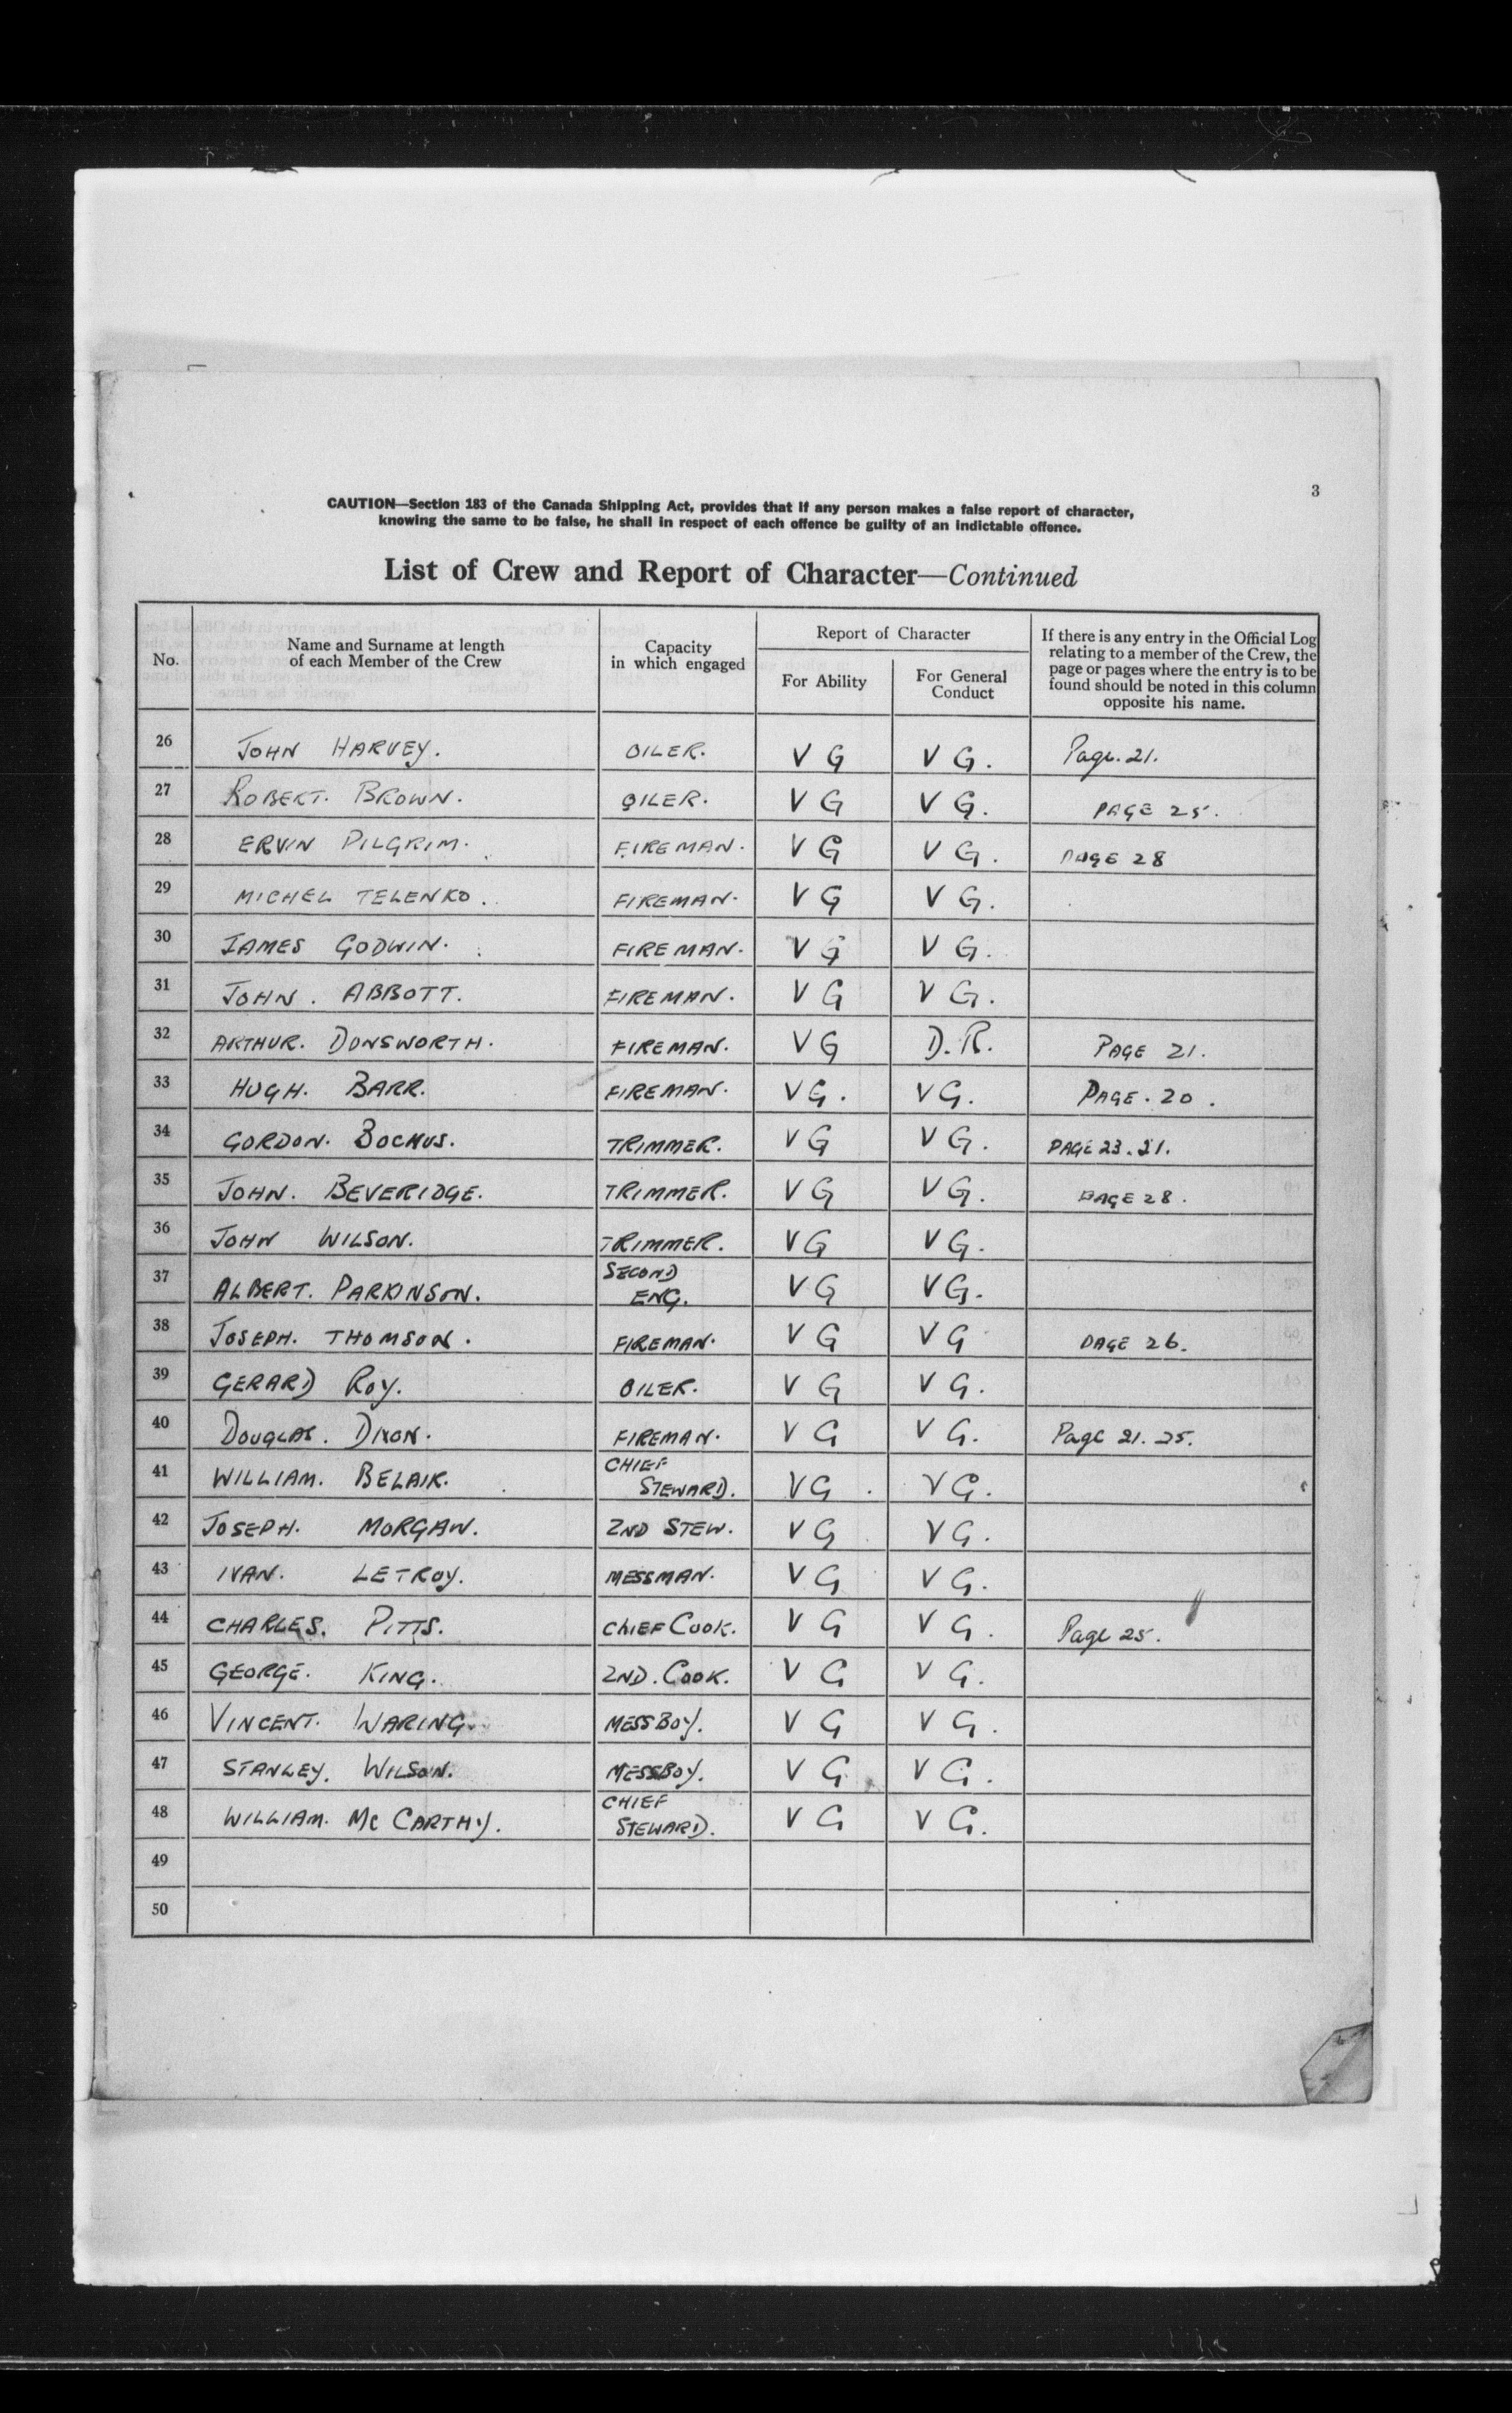 3
CAUTION—Section 183 of the Canada Shipping Act, provides that if any person makes a false report of character,
knowing the same to be false, he shall in respect of each offence be guilty of an indictable offence.
List of Crew and Report of Character—Continued
No. Name and Surname at length of each Member of the Crew Capacity in which engaged Report of Character For Ability For General Conduct If there is any entry in the Official Log relating to a member of the Crew, the page or pages where the entry is to be found should be noted in this column opposite his name.
26 JOHN HARVEY. OILER. V G V G. Page. 21.
27 ROBERT. BROWN. OILER. V G V G. PAGE 25.
28 ERVIN PILGRIM. FIREMAN. V G V G. PAGE 28
29 MICHEL TELENKO. FIREMAN. V G V G.
30 JAMES GODWIN. FIREMAN. V G V G.
31 JOHN. ABBOTT. FIREMAN. V G V G.
32 ARTHUR. DONSWORTH. FIREMAN. V G D.R. PAGE 21.
33 HUGH. BARR. FIREMAN. V G. V G. PAGE. 20.
34 GORDON. BOCHUS. TRIMMER. V G V G. PAGE 23. 21.
35 JOHN. BEVERIDGE. TRIMMER. V G V G. PAGE 28.
36 JOHN WILSON. TRIMMER. V G V G.
37 ALBERT. PARKINSON. SECOND ENG. V G V G.
38 JOSEPH. THOMSON. FIREMAN. V G V G PAGE 26.
39 GERARD ROY. OILER. V G V G.
40 DOUGLAS. DIXON. FIREMAN. V G V G. Page 21. 25.
41 WILLIAM. BELAIR. CHIEF STEWARD. V G. V G.
42 JOSEPH. MORGAN. 2ND STEW. V G V G.
43 IVAN. LETROY. MESSMAN. V G V G.
44 CHARLES. PITTS. CHIEF COOK. V G V G. Page 25.
45 GEORGE. KING. 2ND. COOK. V G V G.
46 VINCENT. WARING. MESSBOY. V G V G.
47 STANLEY. WILSON. MESSBOY. V G V G.
48 WILLIAM. Mc CARTHY. CHIEF STEWARD. V G V G.
49
50